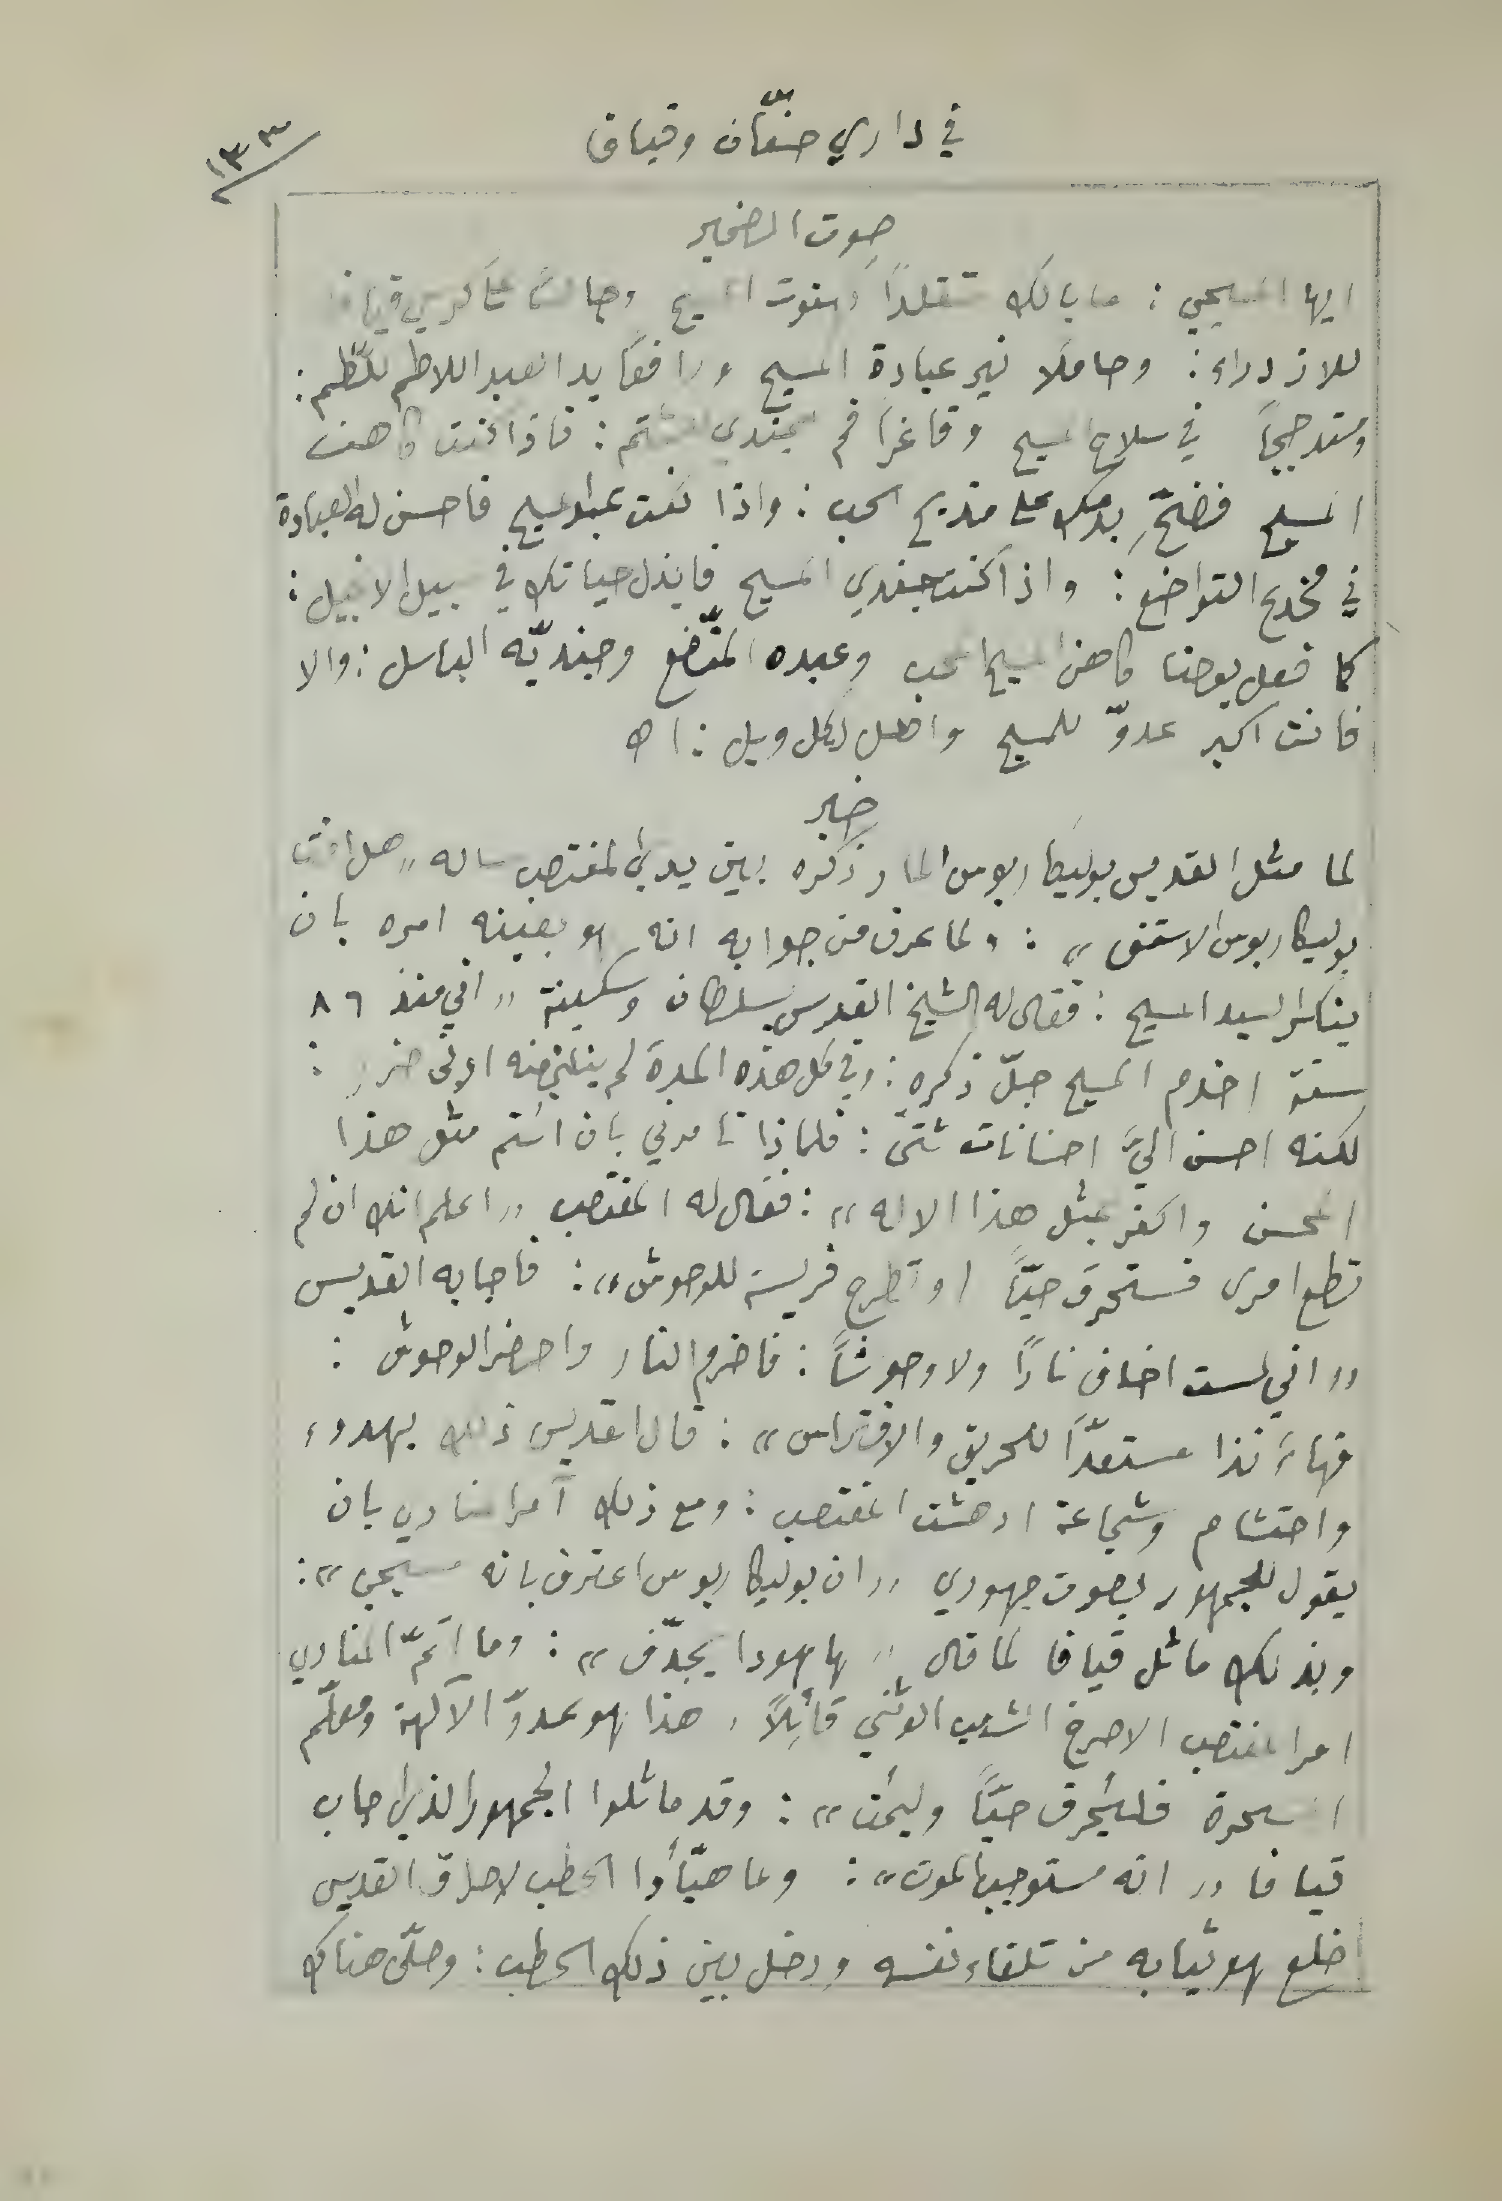 في داري حنّان وقيافا
١٣٣
صوت الضمير
ايها المسيحي : ما بالك متقلدًا كهنوت المسيح وجالسًا على كرسي قيافا
للازدراء : وحاملًا نير عبادة المسيح ورافعًا يد العبد اللاطم للّطم :
ومتدججًا في سلاح المسيح وفاغرًا فم الجندي للشتم : فاذا كنت كاهن
المسيح فضحِّ بدمك على مذبح الحب : واذا كنت عبد المسيح فاحسن له العبادة
في مخدع التواضع : واذا كنت جندي المسيح فابذل حياتك في سبيل الانجيل :
كما فعل يوحنا كاهن المسيح المحب وعبده المتّضع وجنديّه الباسل : والا
فانت اكبر عدوّ للمسيح واهل لكل ويل : اه
خبر
لما مثل القديس بوليكاربوس المار ذكره بين يدي المغتصب ساله „ هل انت
بوليكاربوس الاسقف „ : ولما عرف من جوابه انه هو بعينه امره بان
ينكر السيد المسيح : فقال له الشيخ القديس بسلطان وسكينة „ اني منذ ٨٦
سنة اخدم المسيح جلّ ذكره : وفي كل هذه المدة لم ينلني منه ادنى ضرر :
لكنه احسن اليَّ احسانات شتى : فلماذا تامرني بان اشتم مثل هذا
المحسن واكفر بمثل هذا الاله „ : فقال له المغتصب „ اعلم انك ان لم
تطع امري فستحرق حيًّا او تطرح فريسة للوحوش „ : فاجابه القديس
„ اني لست اخاف نارًا ولا وحوشًا : فاضرم النار واحضر الوحوش :
فهاءنذا مستعدًّا للحريق والافتراس „ : قال القديس ذلك بهدوء
واحتشام وشجاعة ادهشت المغتصب : ومع ذلك آمر المنادي بان
يقول للجمهور بصوت جهوري „ ان بوليكاربوس اعترف بانه مسيحي „ :
وبذلك ماثل قيافا لما قال „ ها هوذا يجدّف „ : وما اتمّ المنادي
امر المغتصب الا صرخ الشعب الوثني قائلًا „ هذا هو عدوّ الآلهة ومعلّم
السحرة فليُحرق حيًّا وليمُت „ : وقد ماثلوا الجمهور الذي اجاب
قيافا „ انه مستوجب الموت „ : وما هيّأوا الحطب لاحراق القديس
خلع هو ثيابه من تلقاء نفسه ودخل بين ذلك الحطب : وصلّى هناك